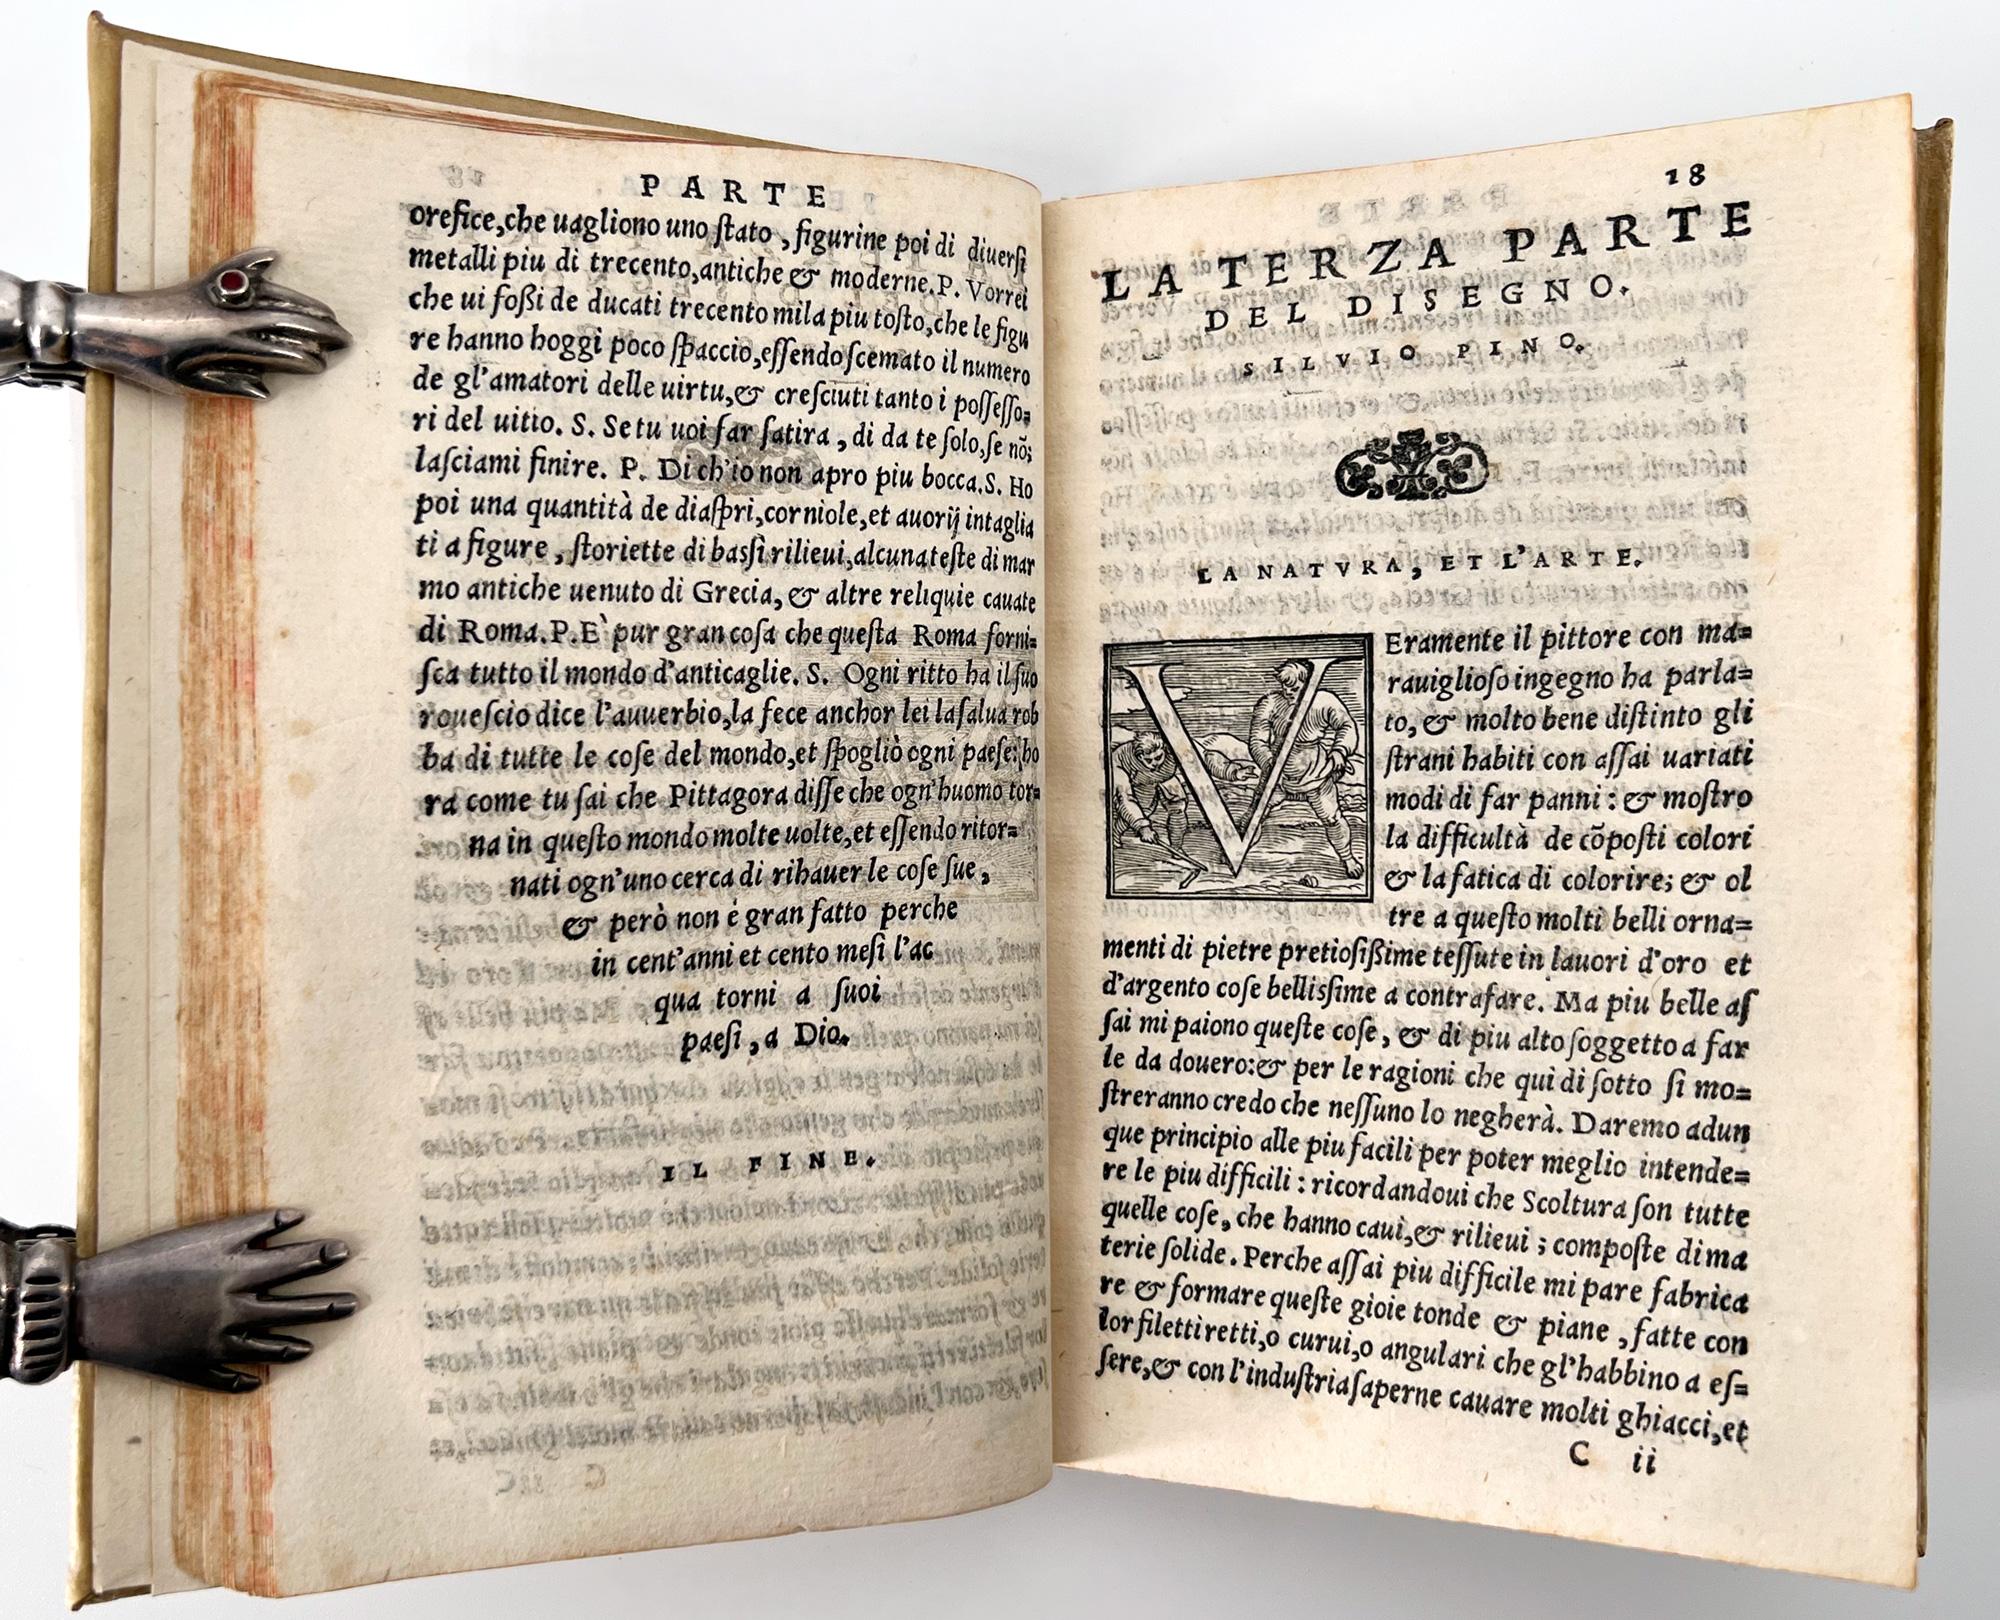 PARTE
orefice, che uagliono uno ſtato, figurine poi di diuerſi
metalli piu di trecento, antiche & moderne. P. Vorrei
che ui foßi de ducati trecento mila piu toſto, che le figu
re hanno hoggi poco ſpaccio, eſſendo ſcemato il numero
de gl'amatori delle uirtu, & creſciuti tanto i poſſeſſo=
ri del uitio. S. Se tu uoi far ſatira, di da te ſolo, ſe nõ;
laſciami finire. P. Di ch'io non apro piu bocca. S. Ho
poi una quantità de diaſpri, corniole, et auorij intaglia
ti a figure, ſtoriette di baſsi rilieui, alcuna teſte di mar
mo antiche uenuto di Grecia, & altre reliquie cauate
di Roma. P. E' pur gran coſa che queſta Roma forni=
ſca tutto il mondo d'anticaglie. S. Ogni ritto ha il ſuo
roueſcio dice l'auuerbio, la fece anchor lei la ſalua rob
ba di tutte le coſe del mondo, et ſpogliò ogni paeſe: ho
ra come tu ſai che Pittagora diſſe che ogn'huomo tor=
na in queſto mondo molte uolte, et eſſendo ritor=
nati ogn'uno cerca di rihauer le coſe ſue,
& però non è gran fatto perche
in cent'anni et cento meſi l'ac
qua torni a ſuoi
paeſi, a Dio.
IL FINE.
18
LA TERZA PARTE
DEL DISEGNO.
SILVIO PINO.
LA NATVRA, ET L'ARTE.
VEramente il pittore con ma=
rauiglioſo ingegno ha parla=
to, & molto bene diſtinto gli
ſtrani habiti con aſſai uariati
modi di far panni: & moſtro
la difficultà de cõpoſti colori
& la fatica di colorire; & ol
tre a queſto molti belli orna=
menti di pietre pretioſißime teſſute in lauori d'oro et
d'argento coſe belliſsime a contrafare. Ma piu belle aſ
ſai mi paiono queſte coſe, & di piu alto ſoggetto a far
le da douero: & per le ragioni che qui di ſotto ſi mo=
ſtreranno credo che neſſuno lo negherà. Daremo adun
que principio alle piu facili per poter meglio intende=
re le piu difficili: ricordandoui che Scoltura ſon tutte
quelle coſe, che hanno caui, & rilieui; compoſte di ma
terie ſolide. Perche aſſai piu difficile mi pare fabrica
re & formare queſte gioie tonde & piane, fatte con
lor filetti retti, o curui, o angulari che gl'habbino a eſ=
ſere, & con l'induſtria ſaperne cauare molti ghiacci, et
C ii